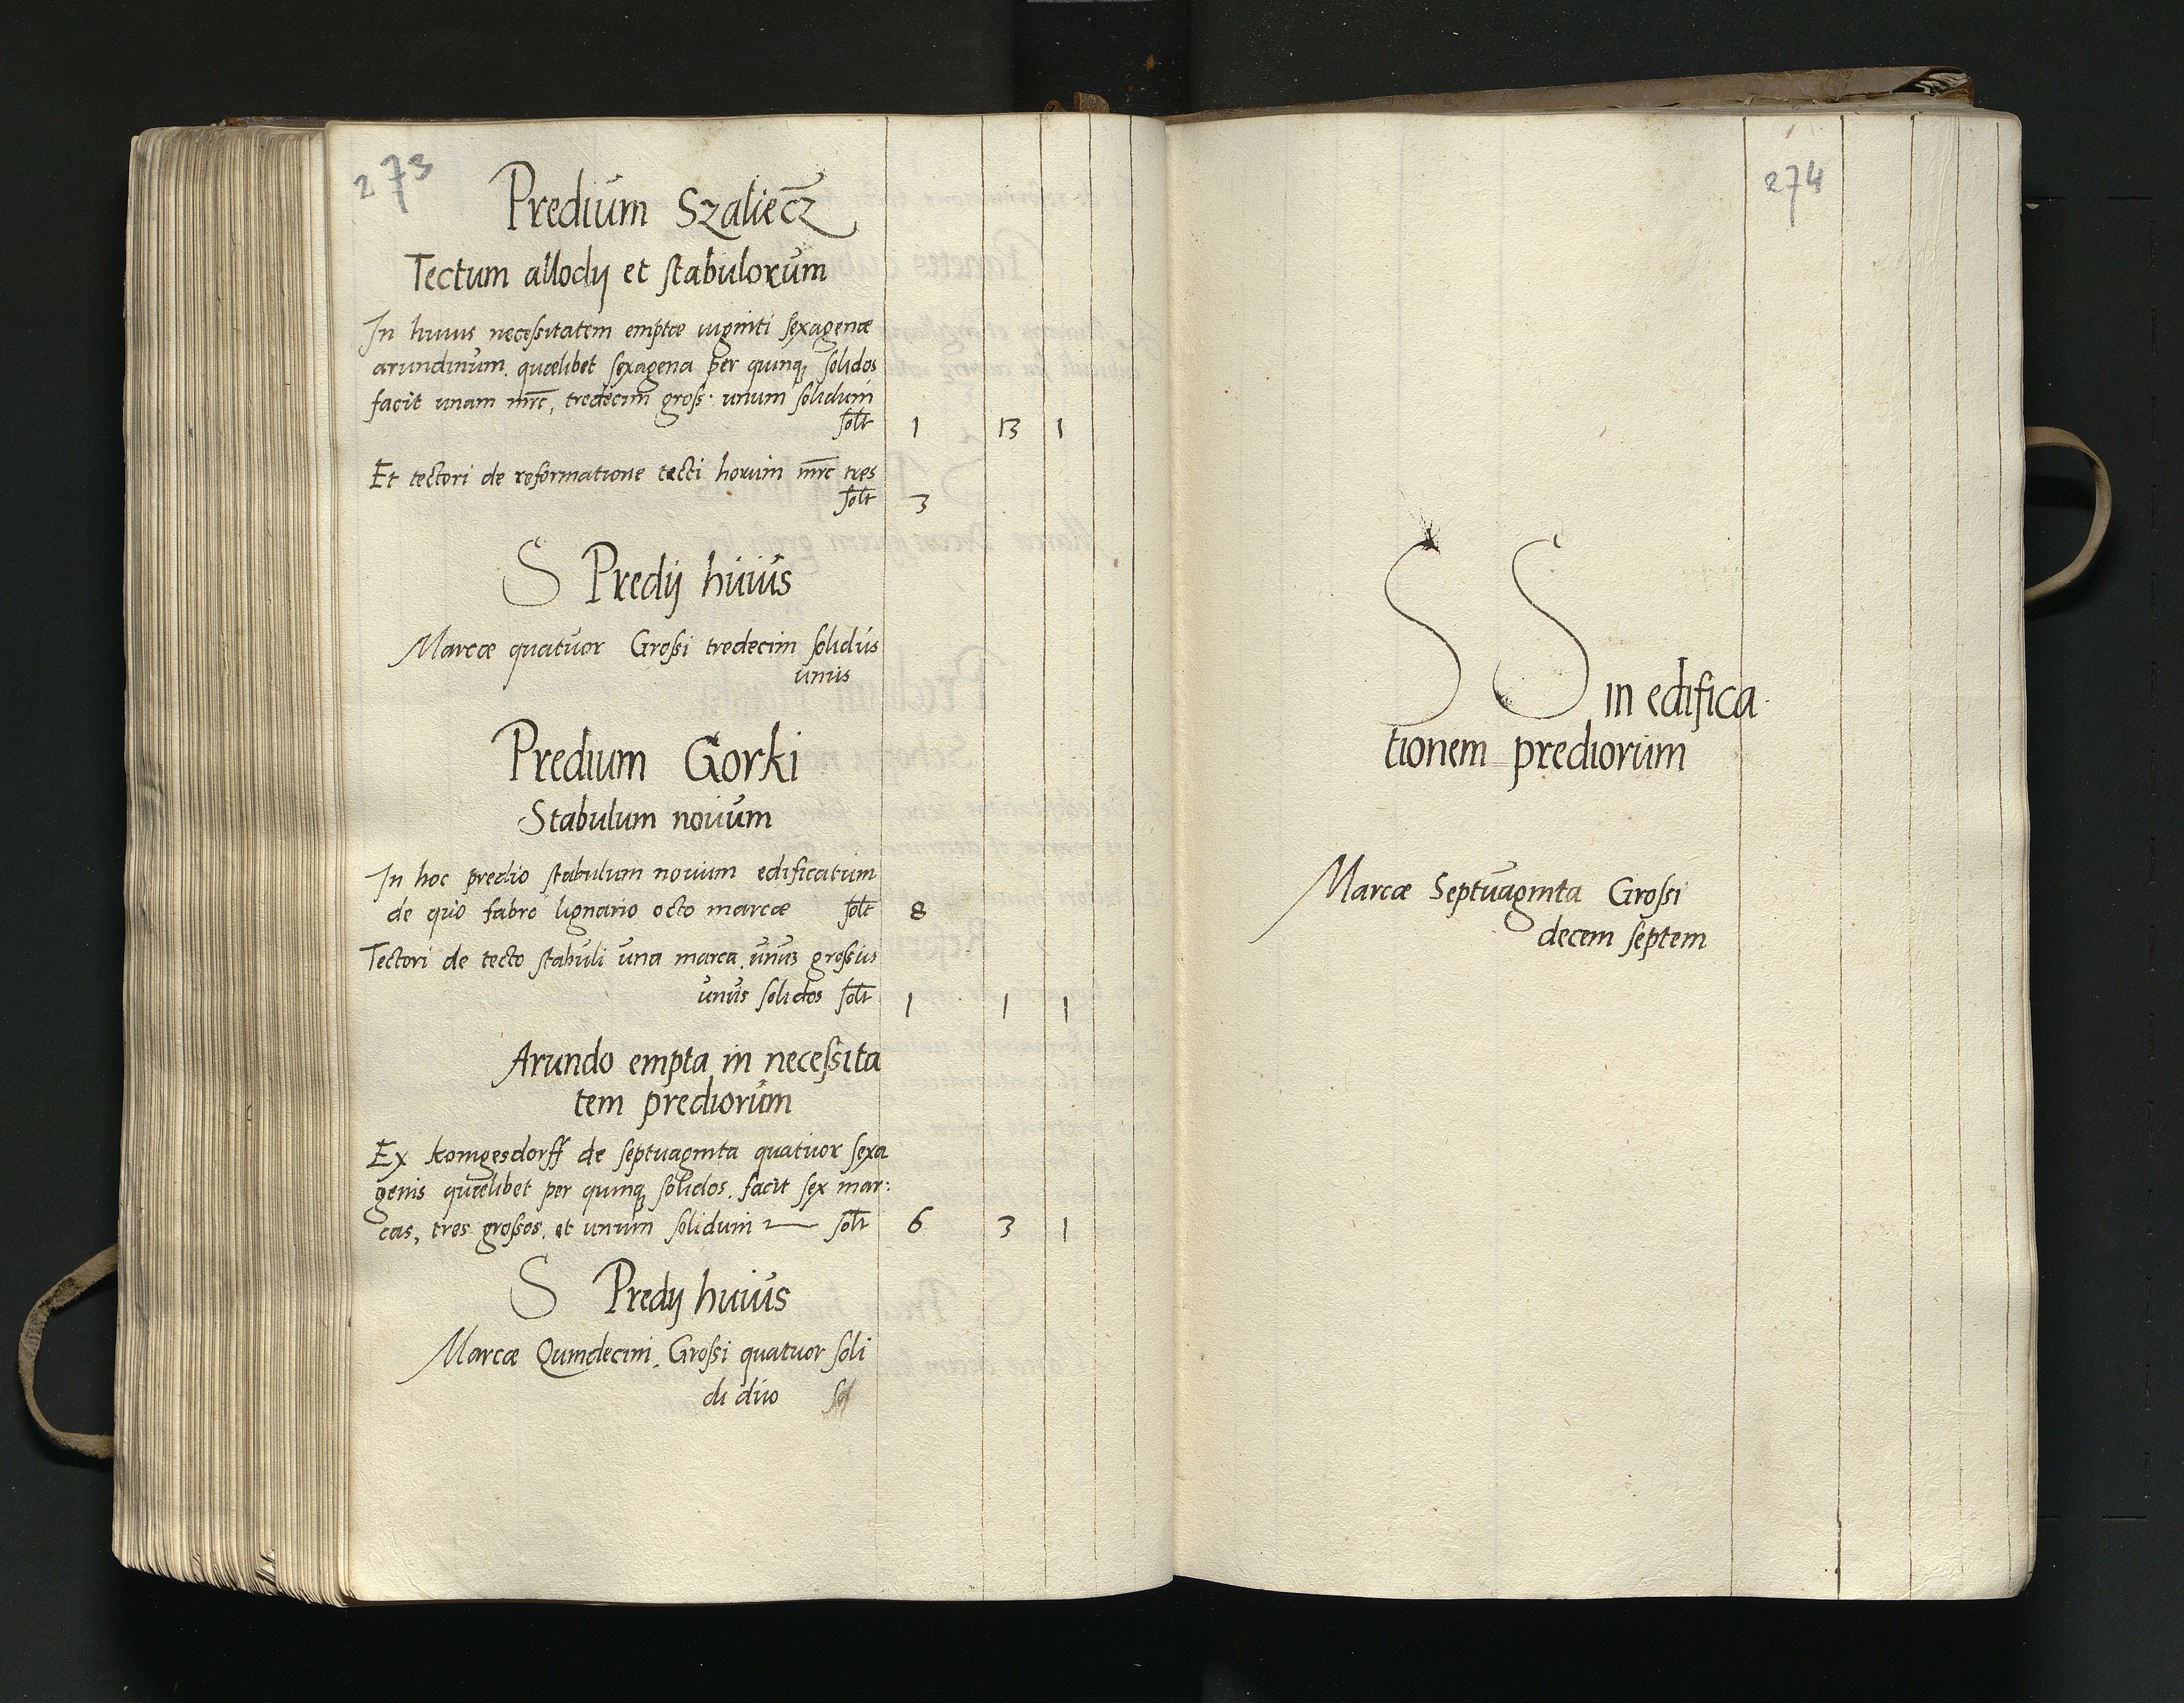 273
Predium Szaliecz
Tectum allodij et stabulorum
In huius necessitatem emptæ uiginti sexagenæ
arundinum. quælibet sexagena per quinq; solidos
facit unam mrc, tredecim gross: unum solidum
solt 1 13 1
Et tectori de reformatione tecti horum mrc tres
solt 3
S Predij huius
Marcæ quatuor Grossi tredecim solidus
unus
Predium Gorki
Stabulum nouum
In hoc predio stabulum nouum edificatum
de quo fabro lignario octo marcæ solt 8
Tectori de tecto stabuli una marca unus grossus
unus solidos solt 1 1 1
Arundo empta in necessita
tem prediorum
Ex konigesdorff de septuaginta quatuor sexa
genis quælibet per quinq; solidos. facit sex mar:
cas, tres grossos. et unum solidum solt 6 3 1
S Predij huius
Marcæ Quindecim. Grossi quatuor soli
di duo
274
S S in edifica
tionem prediorum
Marcæ Septuaginta Grossi
decem septem